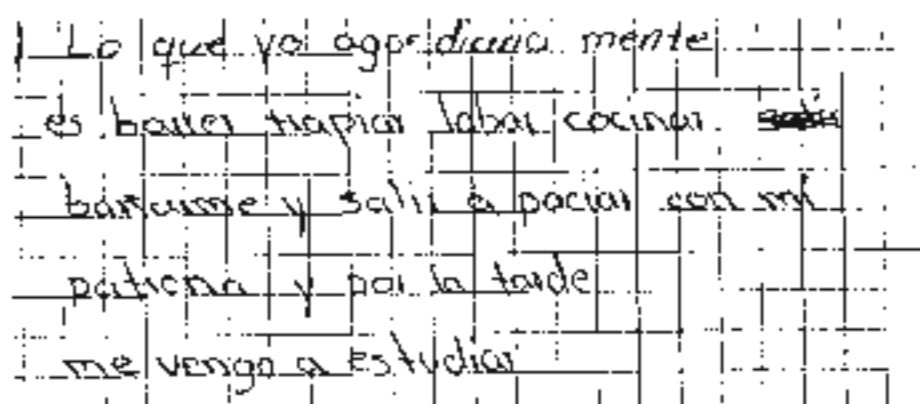 1 Lo que yo ago diaria mente
es barrer trapiar labar cocinar
bañarme y salir a paciar con mi
patrona y por la tarde
me vengo a estudiar